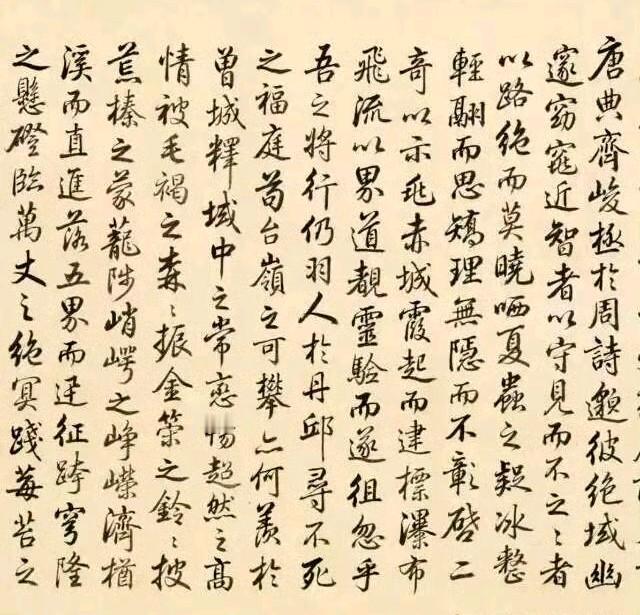 唐典齊峻極於周詩邈彼絕域幽
邃窈窕近智者以守見而不之〻者
以路絕而莫曉哂夏蟲之疑冰整
輕翮而思矯理無隱而不彰啓二
奇以示兆赤城霞起而建標瀑布
飛流以界道覩靈驗而遂徂忽乎
吾之將行仍羽人於丹邱尋不死
之福庭苟台嶺之可攀亦何羨於
曾城釋域中之常戀暢超然之高
情被毛褐之森〻振金策之鈴〻披
荒榛之蒙蘢陟峭崿之崢嶸濟楢
溪而直進落五界而迅征跨穹隆
之懸磴臨萬丈之絕冥踐莓苔之